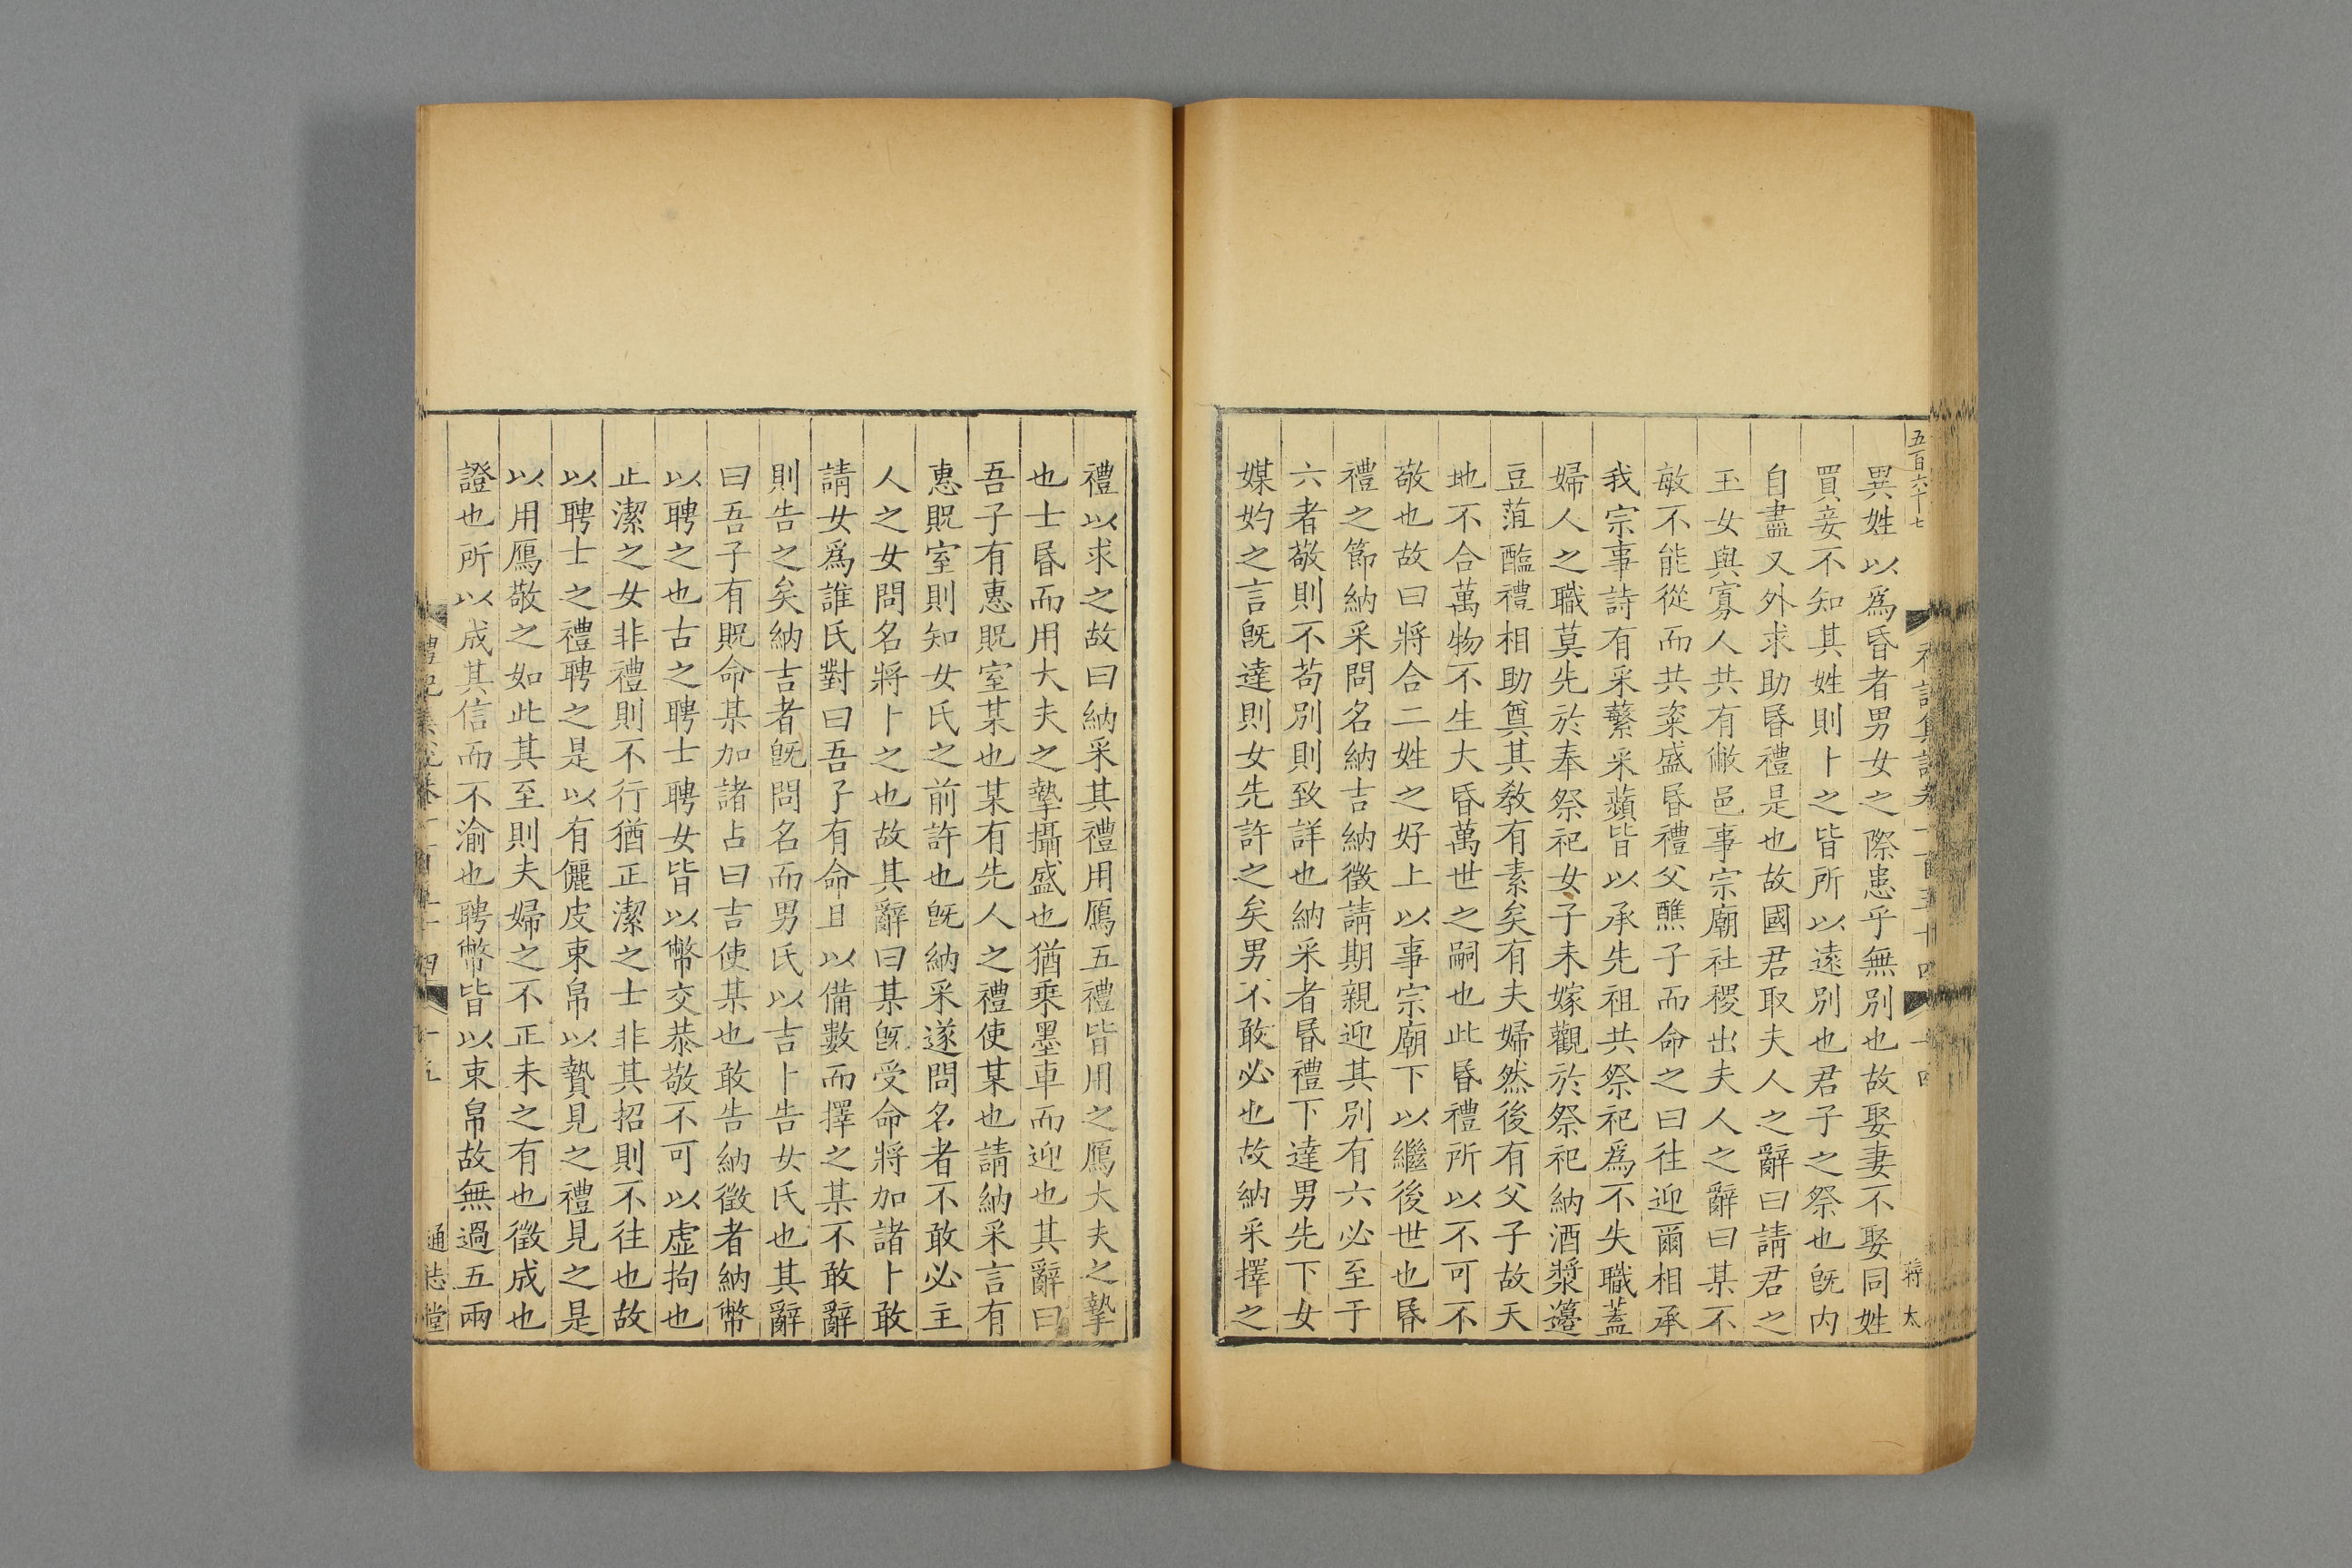 五百六十七
蒋太
異姓以爲昏者男女之際患乎無別也故娶妻不娶同姓
買妾不知其姓則卜之皆所以遠別也君子之祭也旣内
自盡又外求助昏禮是也故國君取夫人之辭曰請君之
玉女與寡人共有敝邑事宗廟社稷出夫人之辭曰某不
敏不能從而共粢盛昏禮父醮子而命之曰往迎爾相承
我宗事詩有采蘩采蘋皆以承先祖共祭祀爲不失職蓋
婦人之職莫先於奉祭祀女子未嫁觀於祭祀納酒漿籩
豆菹醢禮相助奠其敎有素矣有夫婦然後有父子故天
地不合萬物不生大昏萬世之嗣也此昏禮所以不可不
敬也故曰將合二姓之好上以事宗廟下以繼後世也昏
禮之節納采問名納吉納徵請期親迎其別有六必至于
六者敬則不苟別則致詳也納采者昏禮下達男先下女
媒妁之言旣達則女先許之矣男不敢必也故納采擇之
禮以求之故曰納采其禮用鴈五禮皆用之鴈大夫之摯
也士昏而用大夫之摯攝盛也猶乘墨車而迎也其辭曰
吾子有惠貺室某也某有先人之禮使某也請納采言有
惠貺室則知女氏之前許也旣納采遂問名者不敢必主
人之女問名將卜之也故其辭曰某旣受命將加諸卜敢
請女爲誰氏對曰吾子有命且以備數而擇之某不敢辭
則告之矣納吉者旣問名而男氏以吉卜告女氏也其辭
曰吾子有貺命某加諸占曰吉使某也敢告納徵者納幣
以聘之也古之聘士聘女皆以幣交恭敬不可以虛拘也
正潔之女非禮則不行猶正潔之士非其招則不往也故
以聘士之禮聘之是以有儷皮束帛以贄見之禮見之是
以用鴈敬之如此其至則夫婦之不正未之有也徵成也
證也所以成其信而不渝也聘幣皆以束帛故無過五兩
通志堂